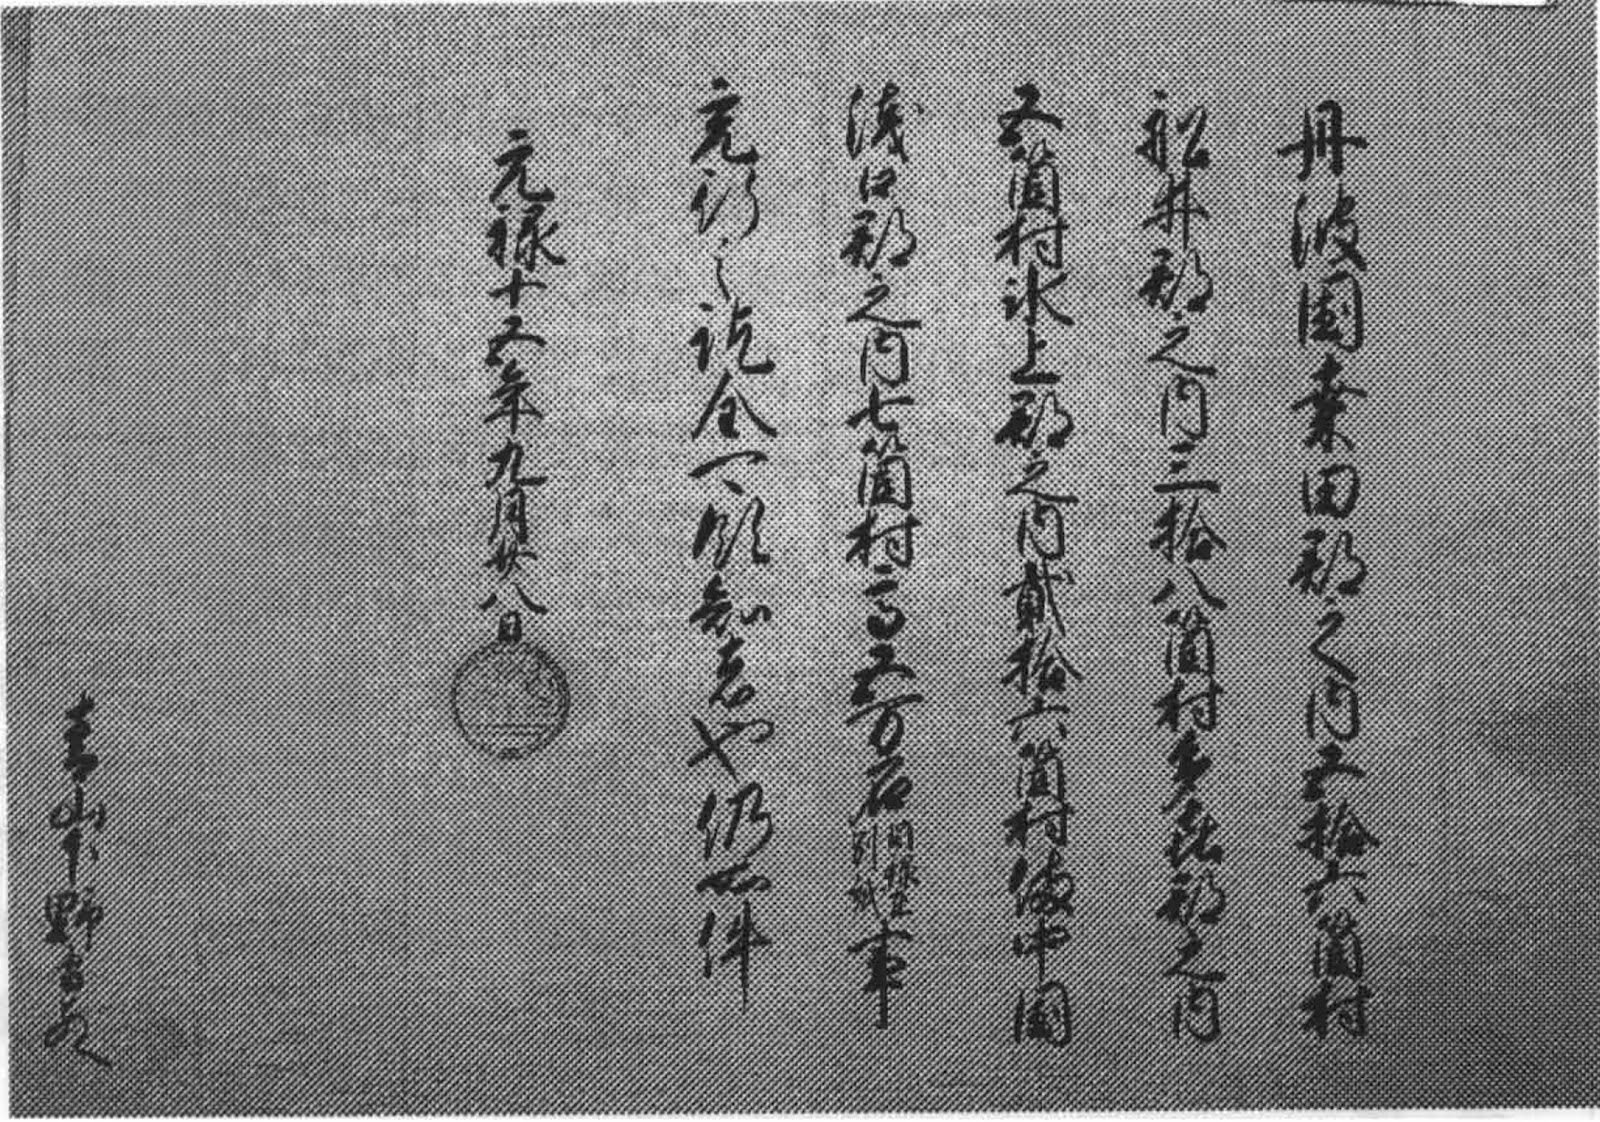 丹波国桑田郡之内五拾六箇村
船井郡之内三拾八箇村多紀郡之内
五箇村氷上郡之内貳拾六箇村備中国
浅口郡之内七箇村高五万石目録在別紙事
充行之訖全可領知者也仍如件
元禄十五年九月廿八日
青山下野守殿